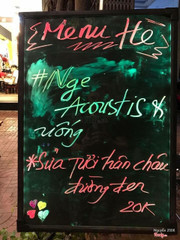 Menu Hè
#Nge
Acoustis &
uống
*Sữa tươi trân châu
đường đen
20K